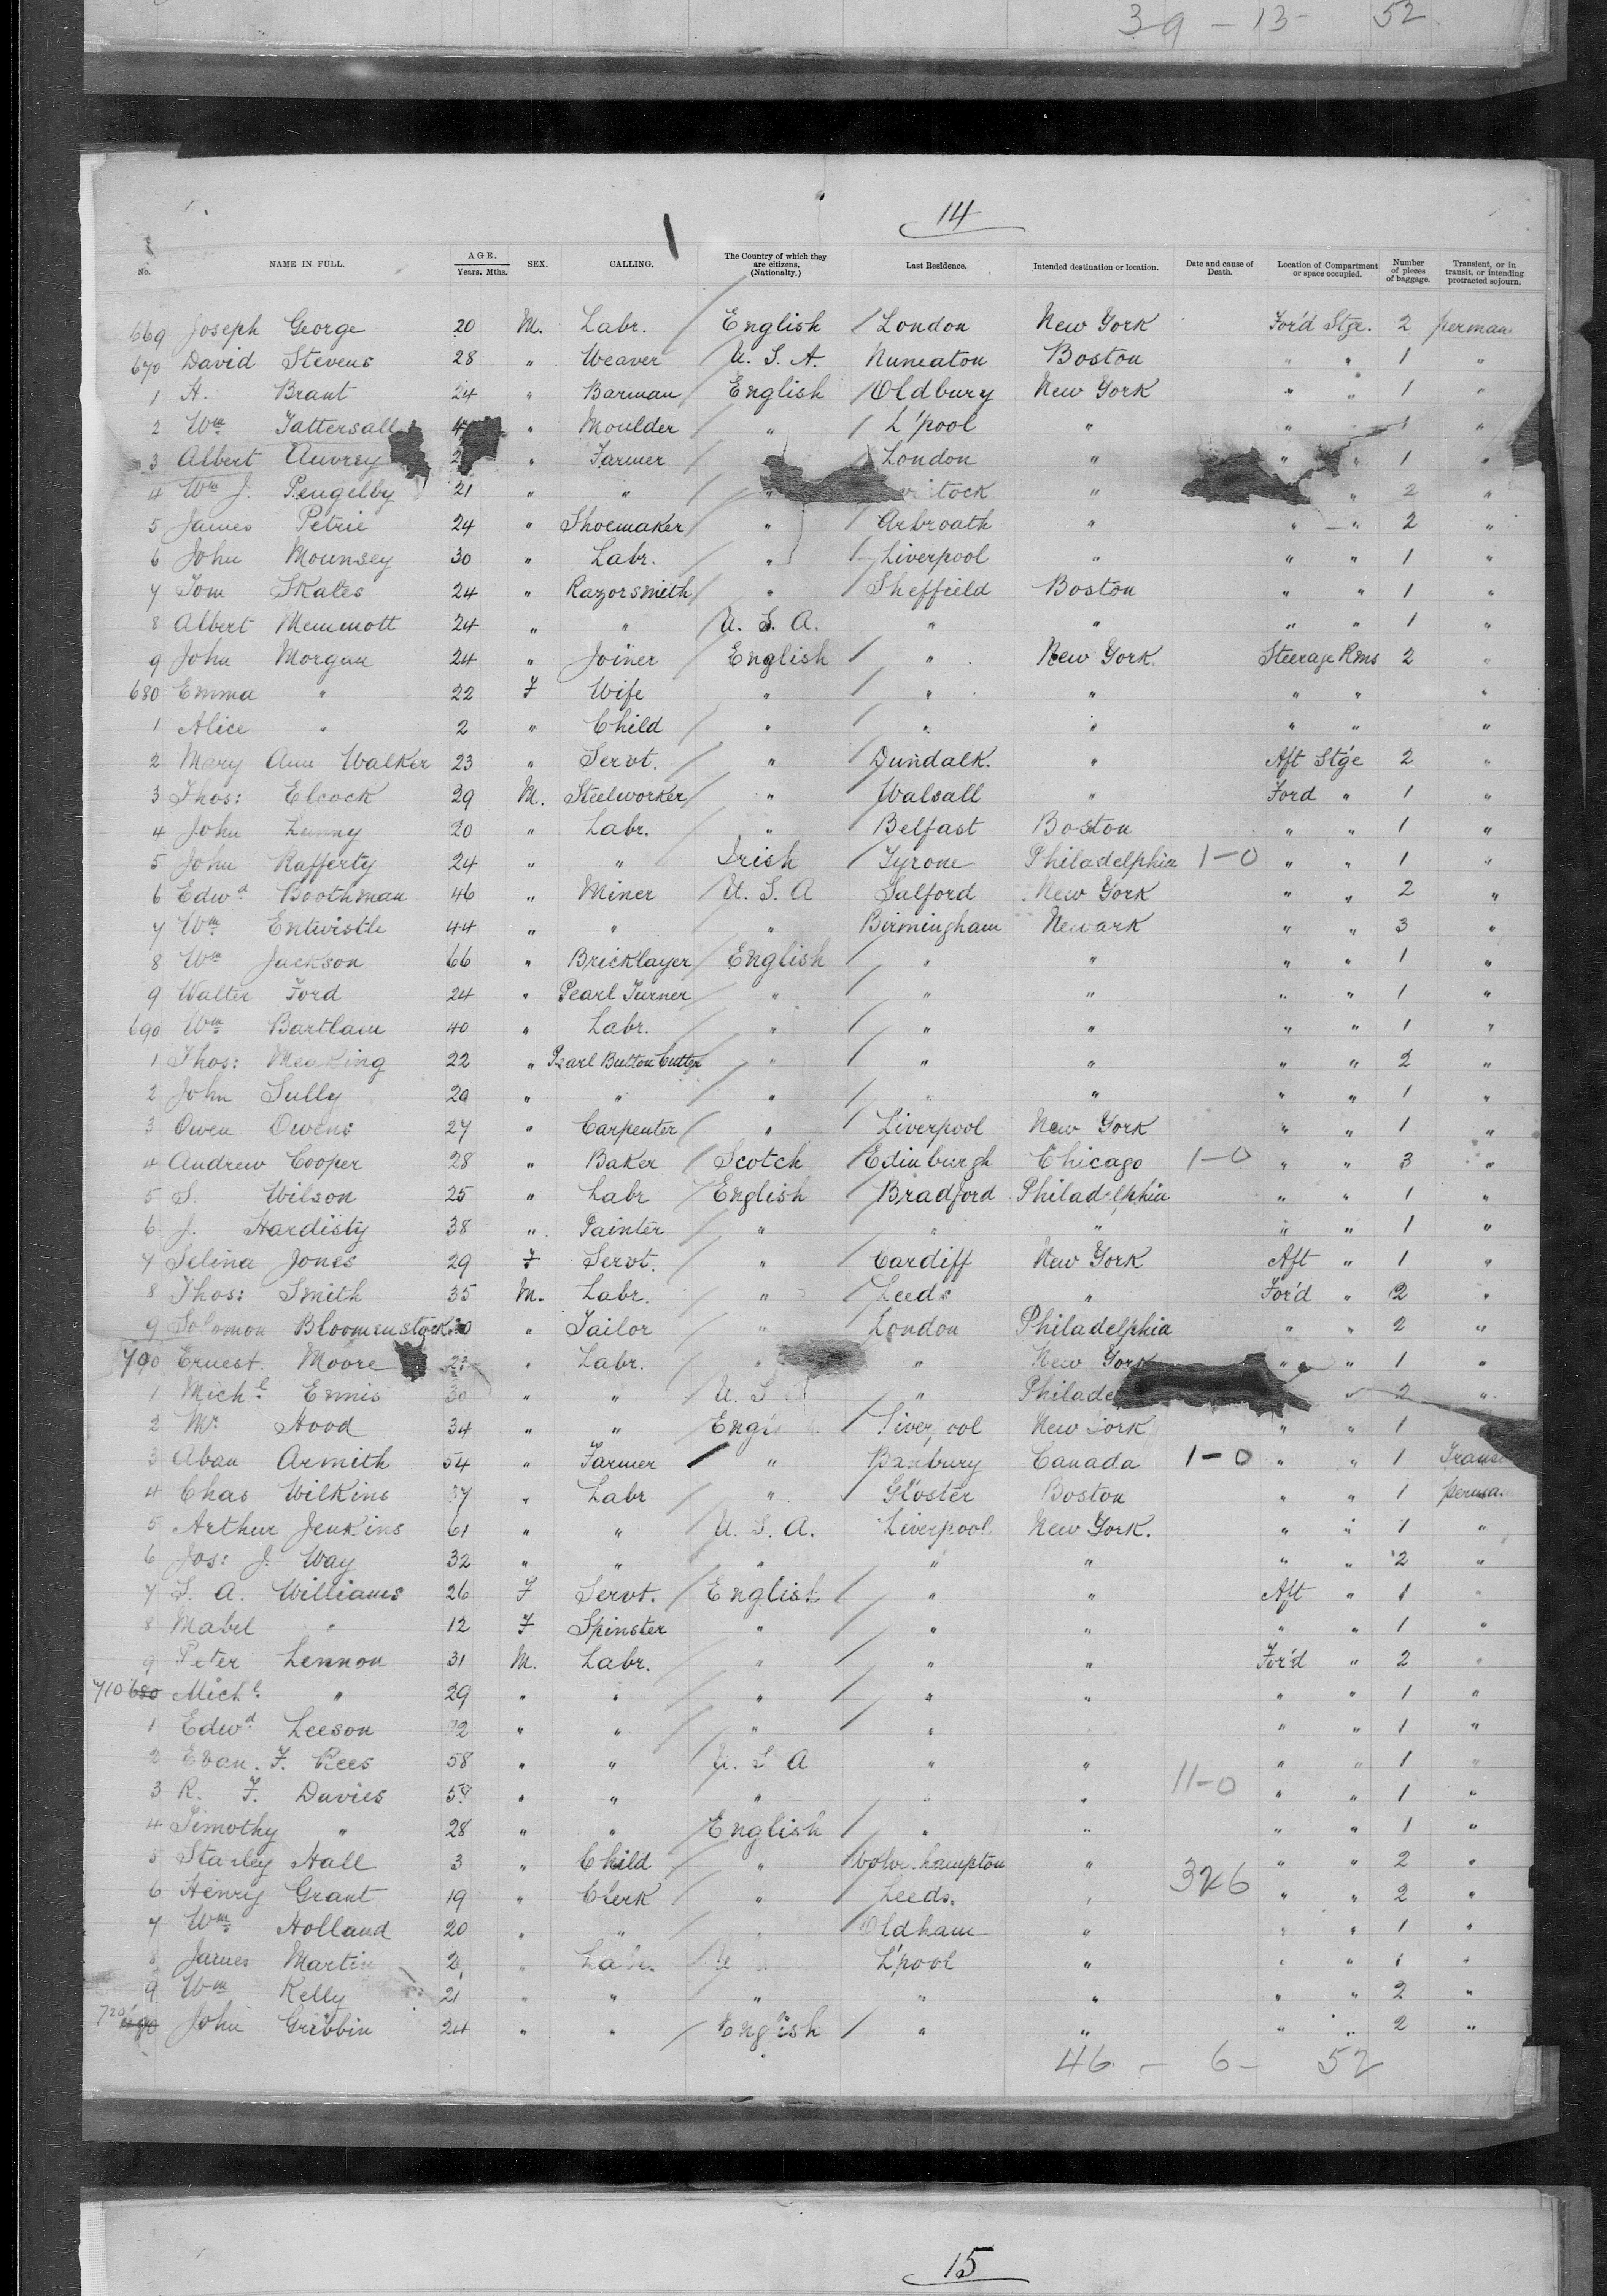 39 - 13 - 52
14
No. NAME IN FULL. AGE. Years. Mths. SEX. CALLING. The Country of which they are citizens. (Nationalty.) Last Residence. Intended destination or location. Date and cause of Death. Location of Compartment or space occupied. Number of pieces of baggage. Transient, or in transit, or intending protracted sojourn.
669 Joseph George 20 M. Labr. English London New York For'd Stge. 2 perman
670 David Stevens 28 " Weaver U. S. A. Nuneaton Boston " " 1 "
1 H. Brant 24 " Barman English Oldbury New York " " 1 "
2 Wm Tattersall 4 " Moulder " L'pool " " 1 "
3 Albert Auvrey 2 " Farmer London " " " 1 "
4 Wm J. Pengelby 21 " " " tock " " 2 "
5 James Petrie 24 " Shoemaker " Arbroath " " " 2 "
6 John Mounsey 30 " Labr. " Liverpool " " " 1 "
7 Tom Skates 24 " Razorsmith " Sheffield Boston " " 1 "
8 Albert Memmott 24 " " U. S. A. " " " " 1 "
9 John Morgan 24 " Joiner English " New York Steerage Rms 2 "
680 Emma " 22 F Wife " " " " " "
1 Alice " 2 " Child " " " " " "
2 Mary Ann Walker 23 " Servt. " Dundalk. " Aft Stge 2 "
3 Thos: Elcock 29 M. Steelworker " Walsall " Ford " 1 "
4 John Lunny 20 " Labr. " Belfast Boston " " 1 "
5 John Rafferty 24 " " Irish Tyrone Philadelphia 1-0 " " 1 "
6 Edwd Boothman 46 " Miner U. S. A Salford New York " " 2 "
7 Wm Entwistle 44 " " " Birmingham Newark " " 3 "
8 Wm Jackson 66 " Bricklayer English " " " " 1 "
9 Walter Ford 24 " Pearl Turner " " " " " 1 "
690 Wm Bartlam 40 " Labr. " " " " " 1 "
1 Thos: Meaking 22 " Pearl Button Cutter " " " " " 2 "
2 John Sully 29 " " " " " " " 1 "
3 Owen Owens 27 " Carpenter " Liverpool New York " " 1 "
4 Andrew Cooper 28 " Baker Scotch Edinburgh Chicago 1-0 " " 3 "
5 S. Wilson 25 " Labr English Bradford Philadelphia " " 1 "
6 J. Hardisty 38 " Painter " " " " " 1 "
7 Selina Jones 29 F Servt. " Cardiff New York Aft " 1 "
8 Thos: Smith 35 M. Labr. " Leeds " For'd " 2 "
9 Solomon Bloomenstock 30 " Tailor " London Philadelphia " " 2 "
700 Ernest Moore 2 " Labr. " " New York " " 1 "
1 Michl Ennis 30 " " U. S " Philade " 2 "
2 Mr Hood 34 " " Eng Liverpool New York " " 1
3 Aban Armith 54 " Farmer " Banbury Canada 1-0 " " 1 Trans
4 Chas Wilkins 37 " Labr " Gloster Boston " " 1 perma
5 Arthur Jenkins 61 " " U. S. A. Liverpool New York. " " 1 "
6 Jos: J. Way 32 " " " " " " " 2 "
7 S. A. Williams 26 F Servt. English " " Aft " 1 "
8 Mabel " 12 F Spinster " " " " " 1 "
9 Peter Lennon 31 M. Labr. " " " For'd " 2 "
710 680 Michl " 29 " " " " " " 1 "
1 Edwd Leeson 2 " " " " " " 1 "
2 Evan. F. Rees 58 " " U. S A " " " " 1 "
11-0
3 R. F. Davies 5 " " " " " " " 1 "
4 Timothy " 28 " " English " " " " 1 "
5 Stanley Hall 3 " Child " Wolvehampton " " " 2 "
326
6 Henry Grant 19 " Clerk " Leeds. " " " 2 "
7 Wm Holland 20 " " " Oldham " " " 1 "
8 James Martin 2 " Labr. U L'pool " " " 1 "
9 Wm Kelly 21 " " " " " " " 2 "
720 John Gribbin 24 " " English " " " " 2 "
46 - 6 - 52
15